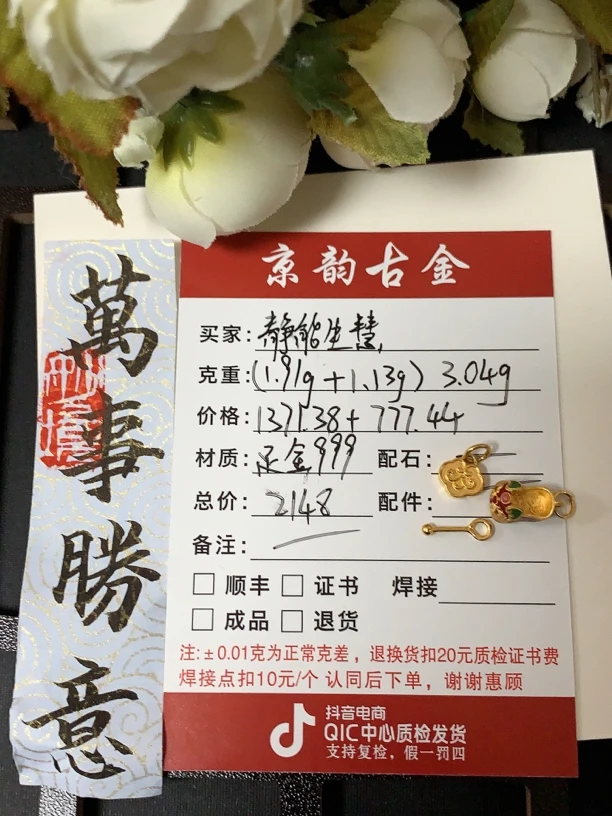 萬事勝意
京韵古金
买家：静能生慧
克重：(1.91g+1.13g) 3.04g
价格：1371.38+777.44
材质：足金999 配石：
总价：2148 配件：
备注：
□ 顺丰 □ 证书 焊接
□ 成品 □ 退货
注：±0.01克为正常克差，退换货扣20元质检证书费
焊接点扣10元/个 认同后下单，谢谢惠顾
抖音电商
QIC中心质检发货
支持复检，假一罚四